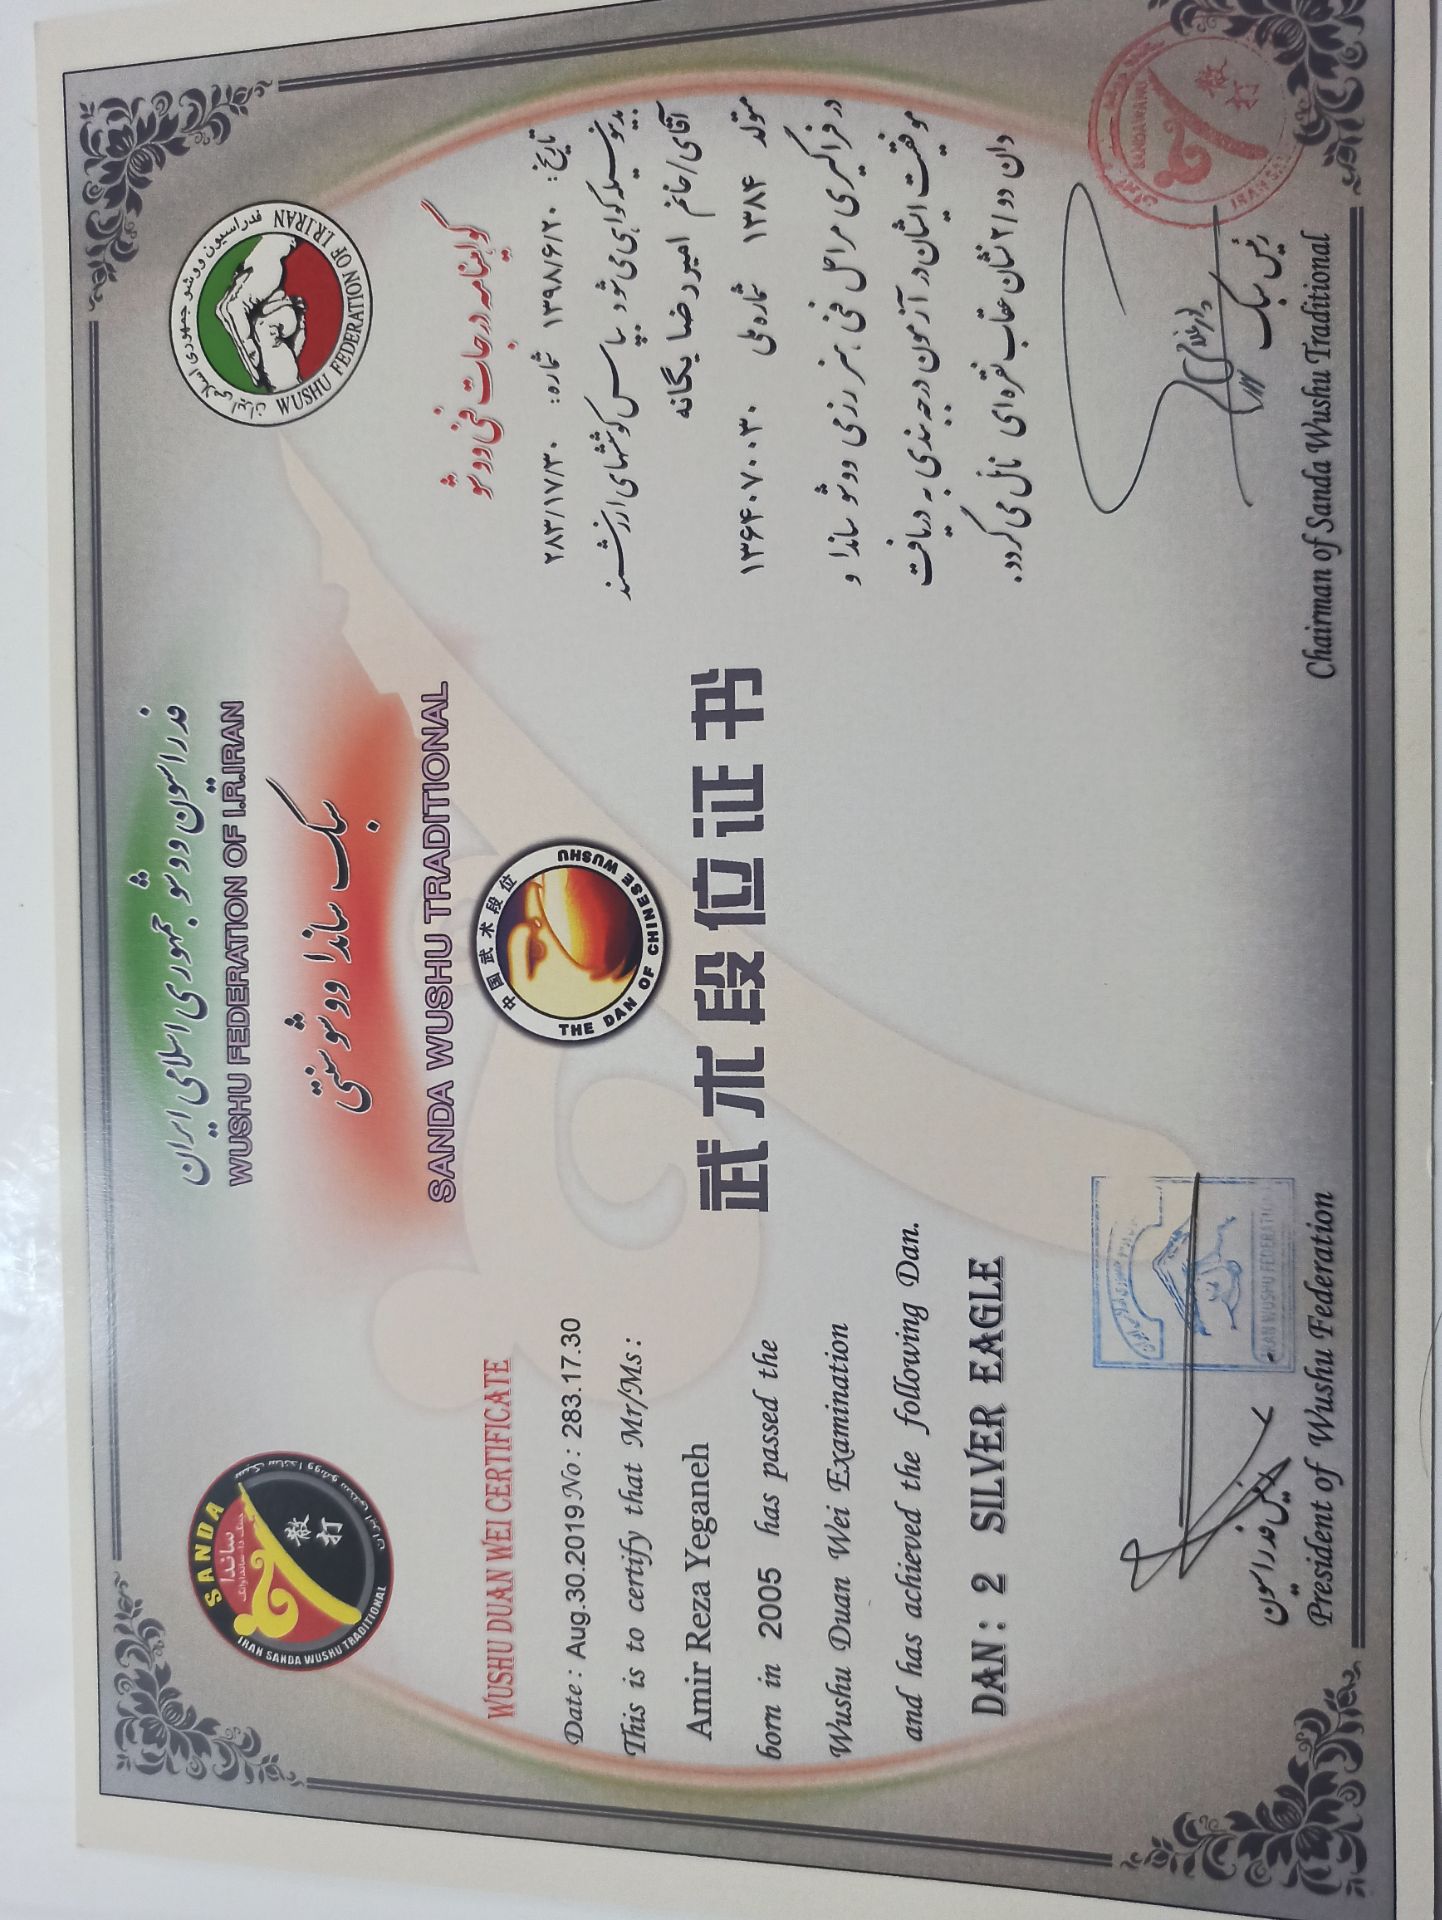 فدراسیون ووشو جمهوری اسلامی ایران
WUSHU FEDERATION OF I.R.IRAN
سبک ساندا ووشو سنتی
SANDA WUSHU TRADITIONAL
SANDA
ساندا
散打
IRAN SANDA WUSHU TRADITIONAL
فدراسیون ووشو جمهوری اسلامی ایران
WUSHU FEDERATION OF I.R.IRAN
中国武术段位
THE DAN OF CHINESE WUSHU
武术段位证书
WUSHU DUAN WEI CERTIFICATE
Date : Aug.30.2019 No : 283.17.30
This is to certify that Mr/Ms :
Amir Reza Yeganeh
born in 2005 has passed the
Wushu Duan Wei Examination
and has achieved the following Dan.
DAN : 2 SILVER EAGLE
گواهینامه درجات فنی ووشو
تاریخ: ۱۳۹۸/۶/۲۰ شماره: ۲۸۳/۱۷/۳۰
بدینوسیله گواهی می شود بپاس کوششهای ارزشمند
آقای/خانم امیررضا یگانه
متولد ۱۳۸۴ شماره ملی ۱۳۶۴۰۷۰۰۳۰
در فراگیری مراحل فنی هنر رزمی ووشو ساندا و
موفقیت ایشان در آزمون درجه بندی به دریافت
دان دو/۲ نشان عقاب نقره ای نائل می گردد.
رئیس فدراسیون
President of Wushu Federation
IRAN WUSHU FEDERATION
رئیس سبک
Chairman of Sanda Wushu Traditional
散打